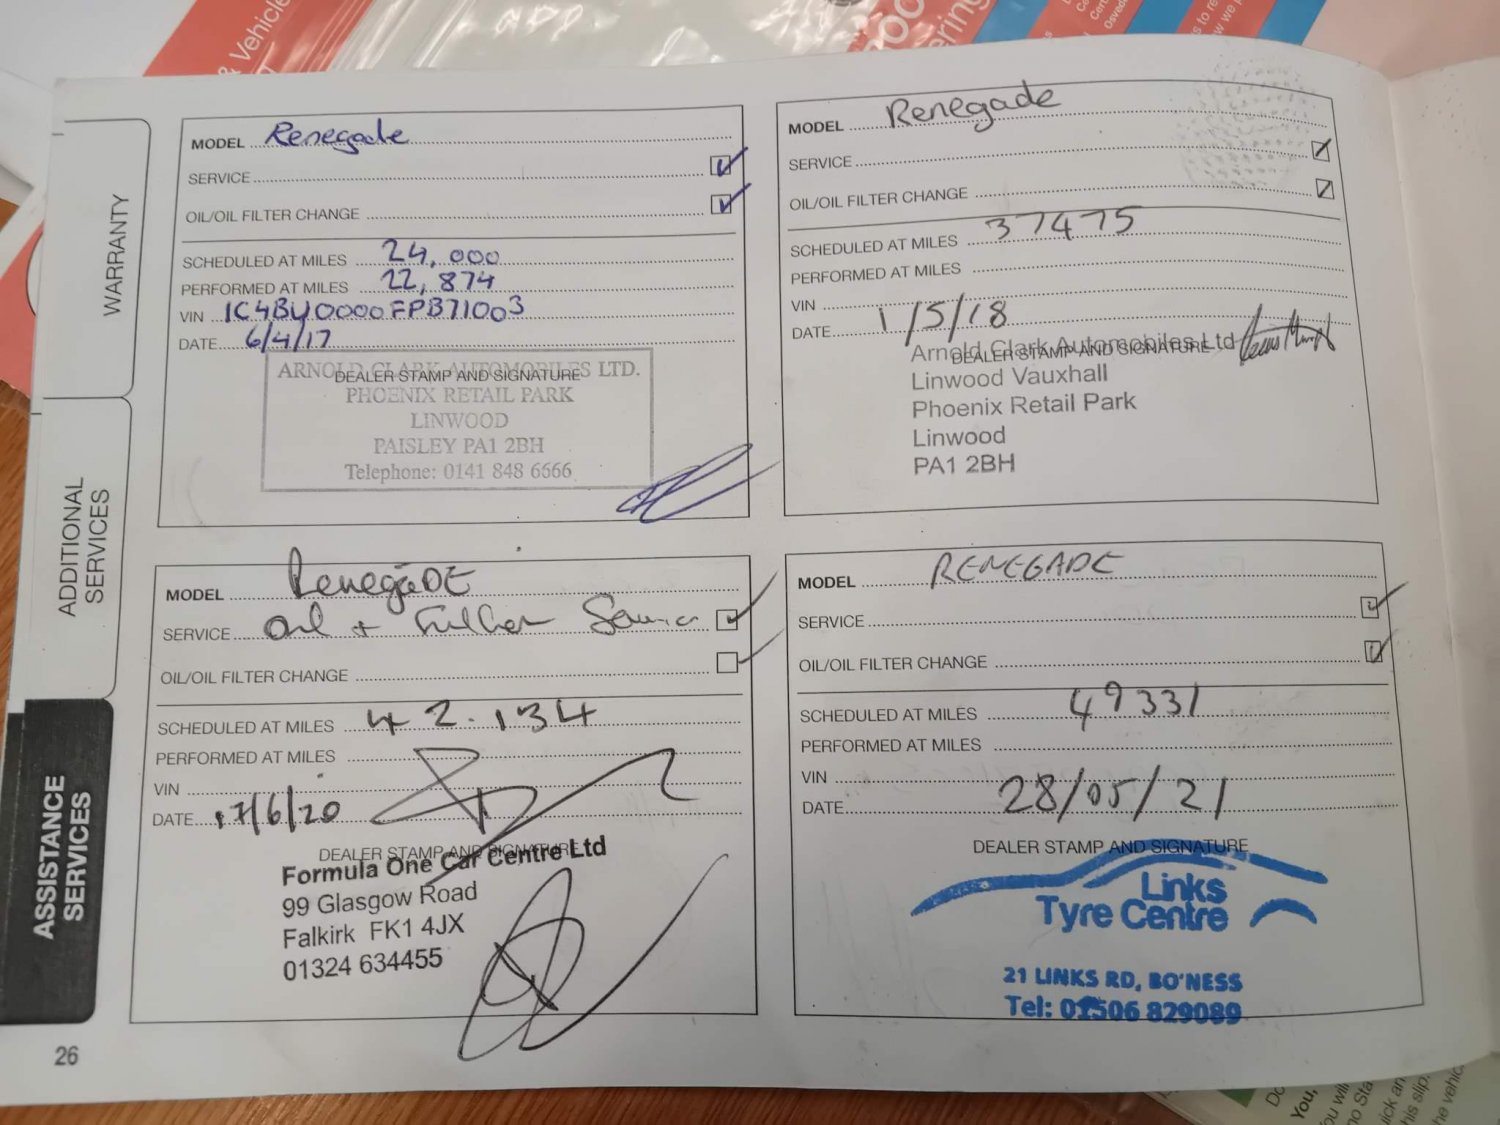 & Vehicle
WARRANTY
ADDITIONAL
SERVICES
ASSISTANCE
SERVICES
26
MODEL Renegade
SERVICE
OIL/OIL FILTER CHANGE
SCHEDULED AT MILES 24,000
PERFORMED AT MILES 22,874
VIN 1C4BU0000FPB71003
DATE 6/4/17
DEALER STAMP AND SIGNATURE
ARNOLD CLARK AUTOMOBILES LTD.
PHOENIX RETAIL PARK
LINWOOD
PAISLEY PA1 2BH
Telephone: 0141 848 6666
MODEL Renegade
SERVICE
OIL/OIL FILTER CHANGE
SCHEDULED AT MILES 37475
PERFORMED AT MILES
VIN
DATE 1/5/18
DEALER STAMP AND SIGNATURE
Arnold Clark Automobiles Ltd
Linwood Vauxhall
Phoenix Retail Park
Linwood
PA1 2BH
MODEL RenegaDE
SERVICE Oil +
OIL/OIL FILTER CHANGE
SCHEDULED AT MILES 42.134
PERFORMED AT MILES
VIN
DATE 17/6/20
DEALER STAMP AND SIGNATURE
Formula One Car Centre Ltd
99 Glasgow Road
Falkirk FK1 4JX
01324 634455
MODEL RENEGADE
SERVICE
OIL/OIL FILTER CHANGE
SCHEDULED AT MILES 49331
PERFORMED AT MILES
VIN
DATE 28/05/21
DEALER STAMP AND SIGNATURE
Links
Tyre Centre
21 LINKS RD, BO'NESS
Tel: 01506 829089
You,